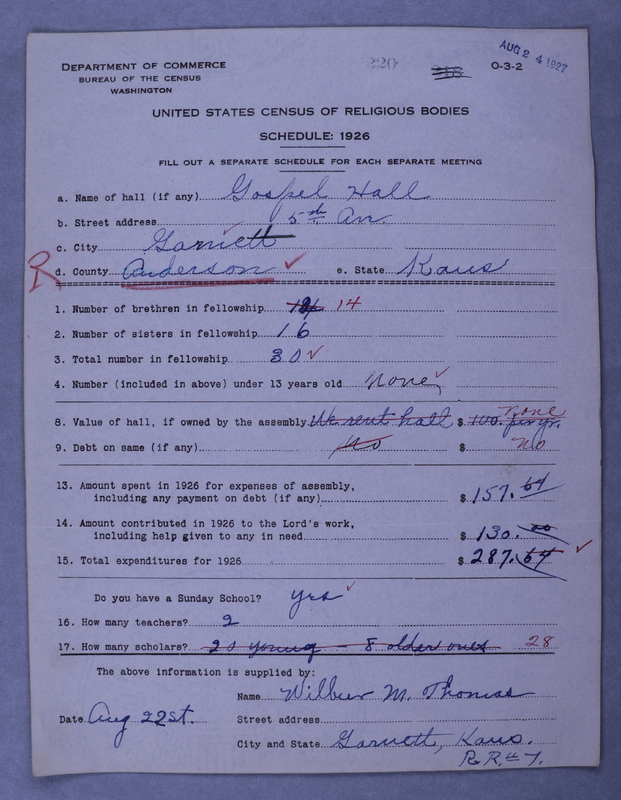 DEPARTMENT OF COMMERCE
BUREAU OF THE CENSUS
WASHINGTON
220
318
O-3-2
AUG 24 1927
UNITED STATES CENSUS OF RELIGIOUS BODIES
SCHEDULE: 1926
FILL OUT A SEPARATE SCHEDULE FOR EACH SEPARATE MEETING
a. Name of hall (if any) Gospel Hall
b. Street address 5th Av.
c. City Garnett
R d. County Anderson ✓ e. State Kans
1. Number of brethren in fellowship 14
2. Number of sisters in fellowship 16
3. Total number in fellowship 30 ✓
4. Number (included in above) under 13 years old None
8. Value of hall, if owned by the assembly We rent hall $ 100. per yr. None
9. Debt on same (if any) No $ No
13. Amount spent in 1926 for expenses of assembly,
including any payment on debt (if any) $ 157.64
14. Amount contributed in 1926 to the Lord's work,
including help given to any in need $ 130.00
15. Total expenditures for 1926 $ 287.64 ✓
Do you have a Sunday School? yes ✓
16. How many teachers? 2
17. How many scholars? 20 young - 8 older ones 28
The above information is supplied by:
Name Wilbur M. Thomas
Date Aug 22st. Street address
City and State Garnett, Kans.
R.R. # 7.